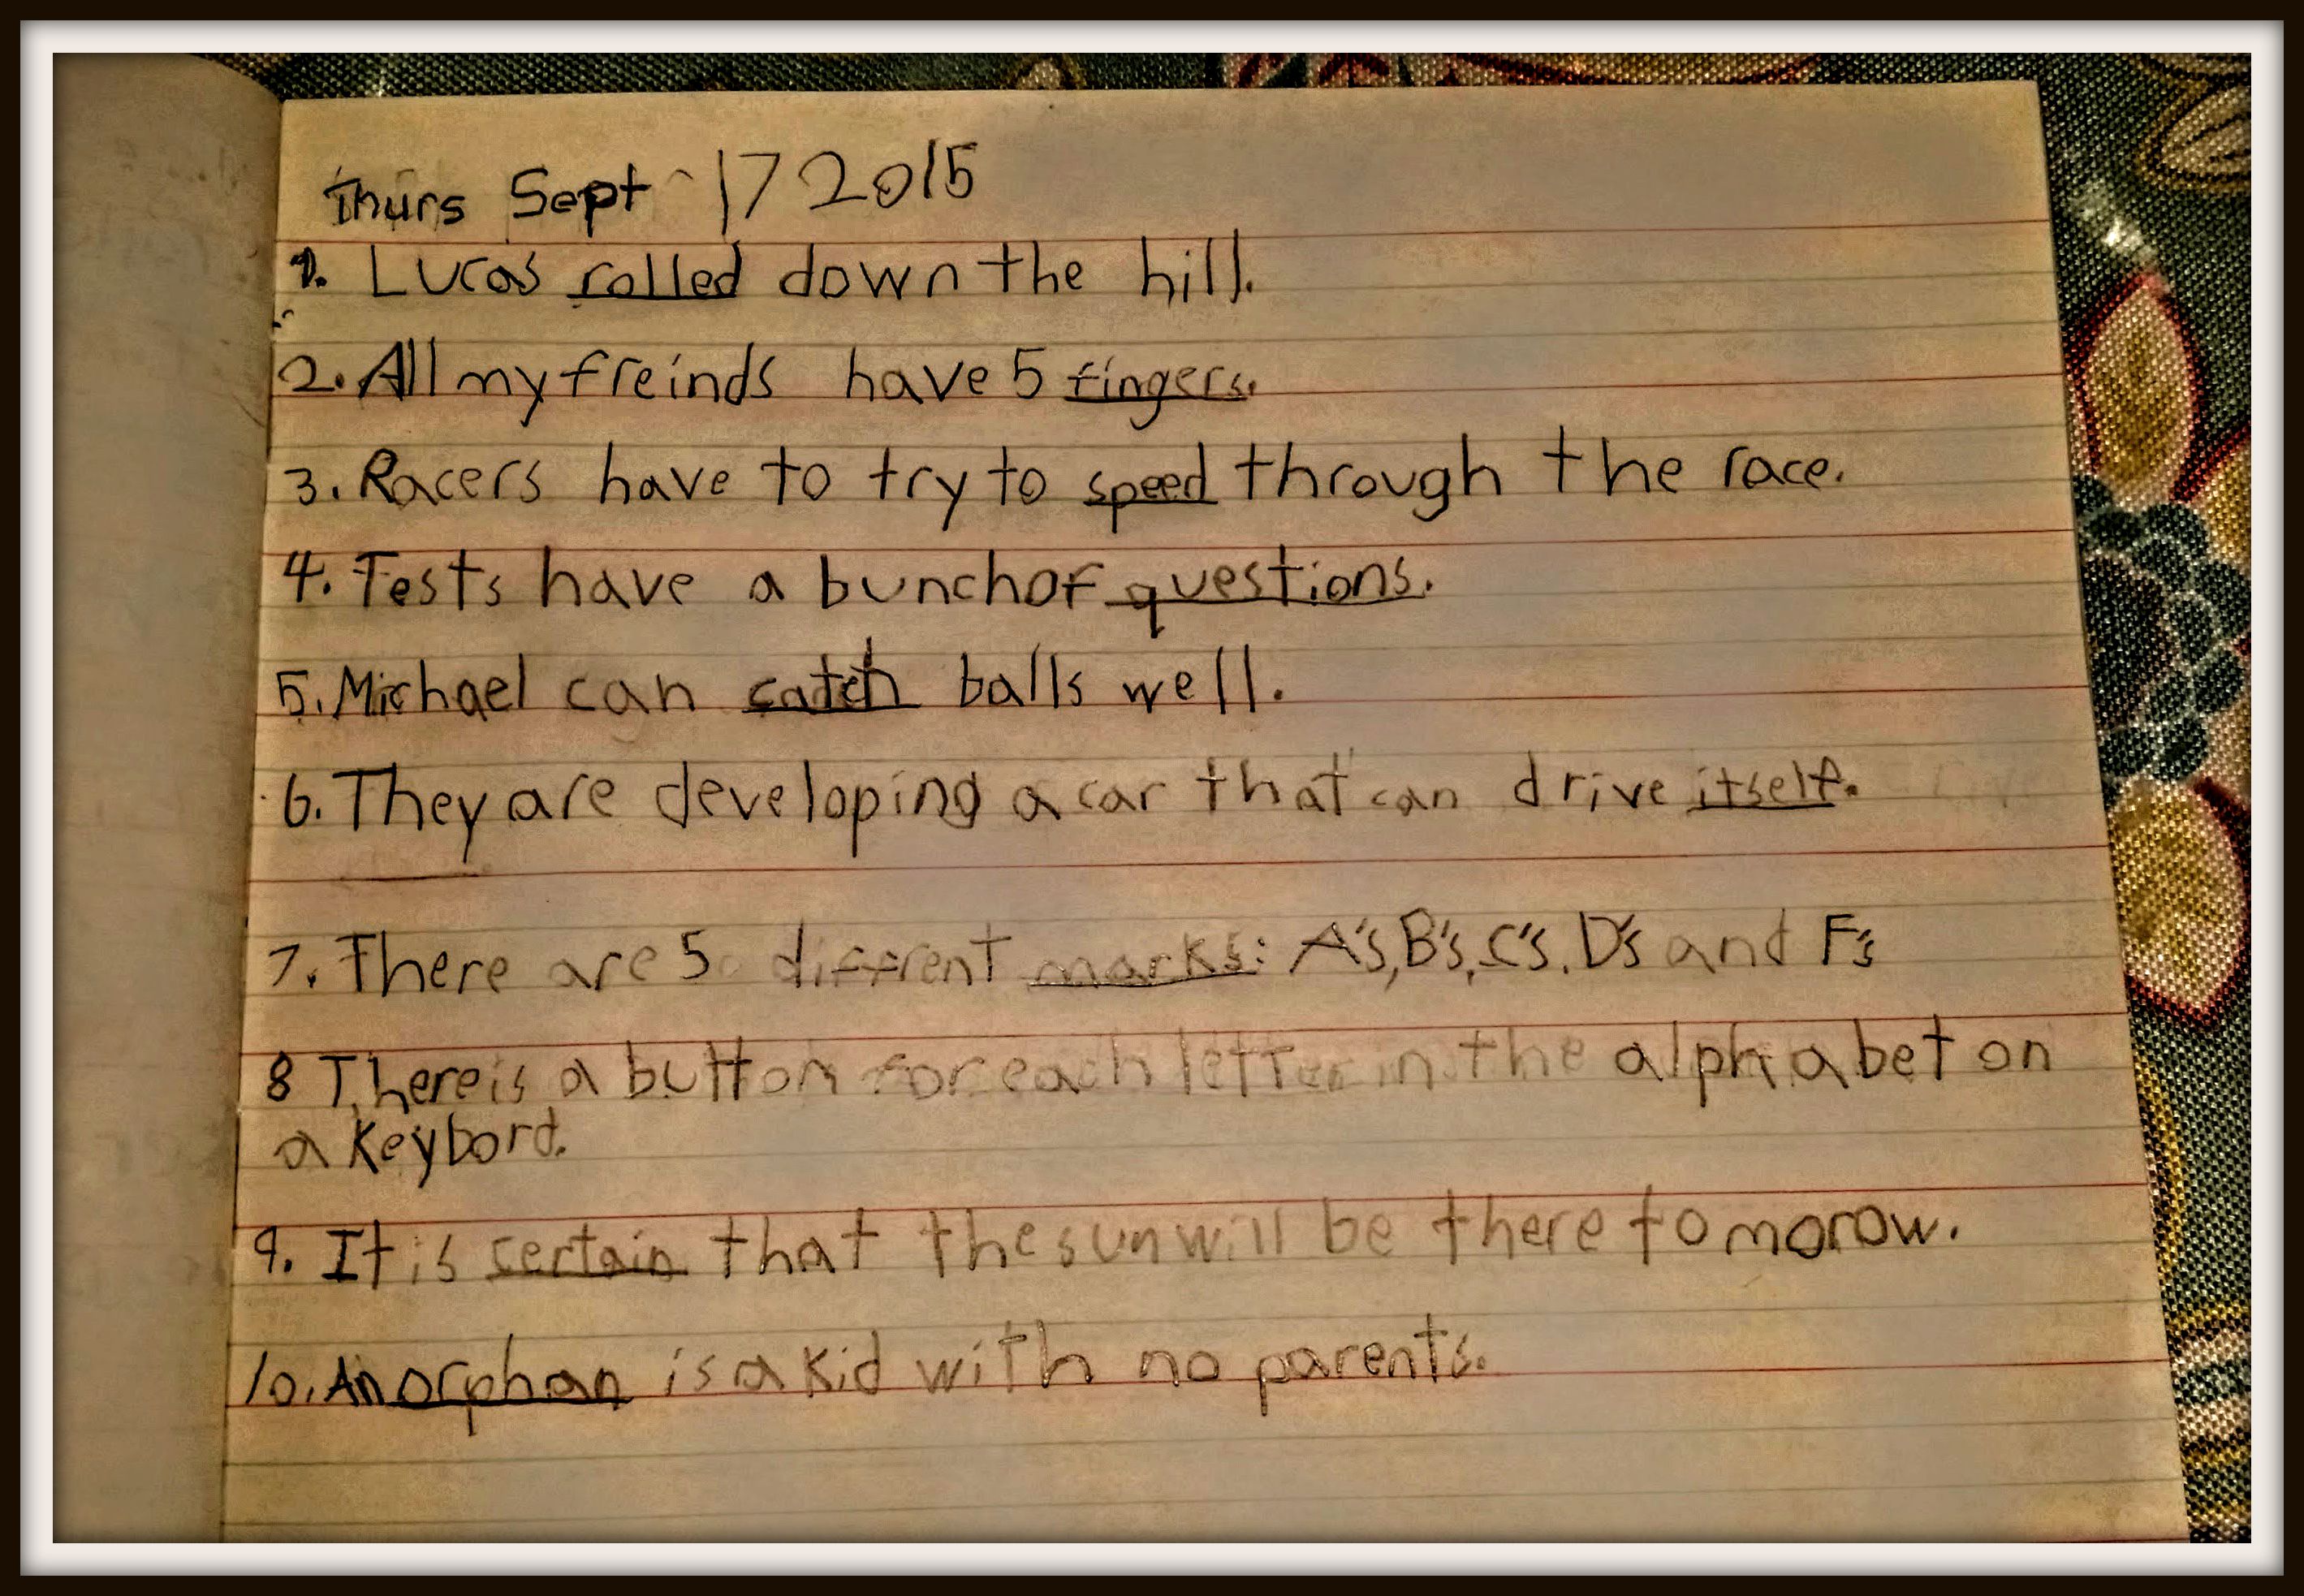 Thurs Sept 17 2015
1. Lucas rolled down the hill.
2. All my freinds have 5 fingers.
3. Racers have to try to speed through the race.
4. Tests have a bunch of questions.
5. Michael can catch balls well.
6. They are developing a car that can drive itself.
7. There are 5 diffrent marks: A's, B's, C's, D's and F's
8 There is a button for each letter in the alphabet on
a Keybord.
9. It is certain that the sun will be there tomorow.
10. An orphan is a kid with no parents.